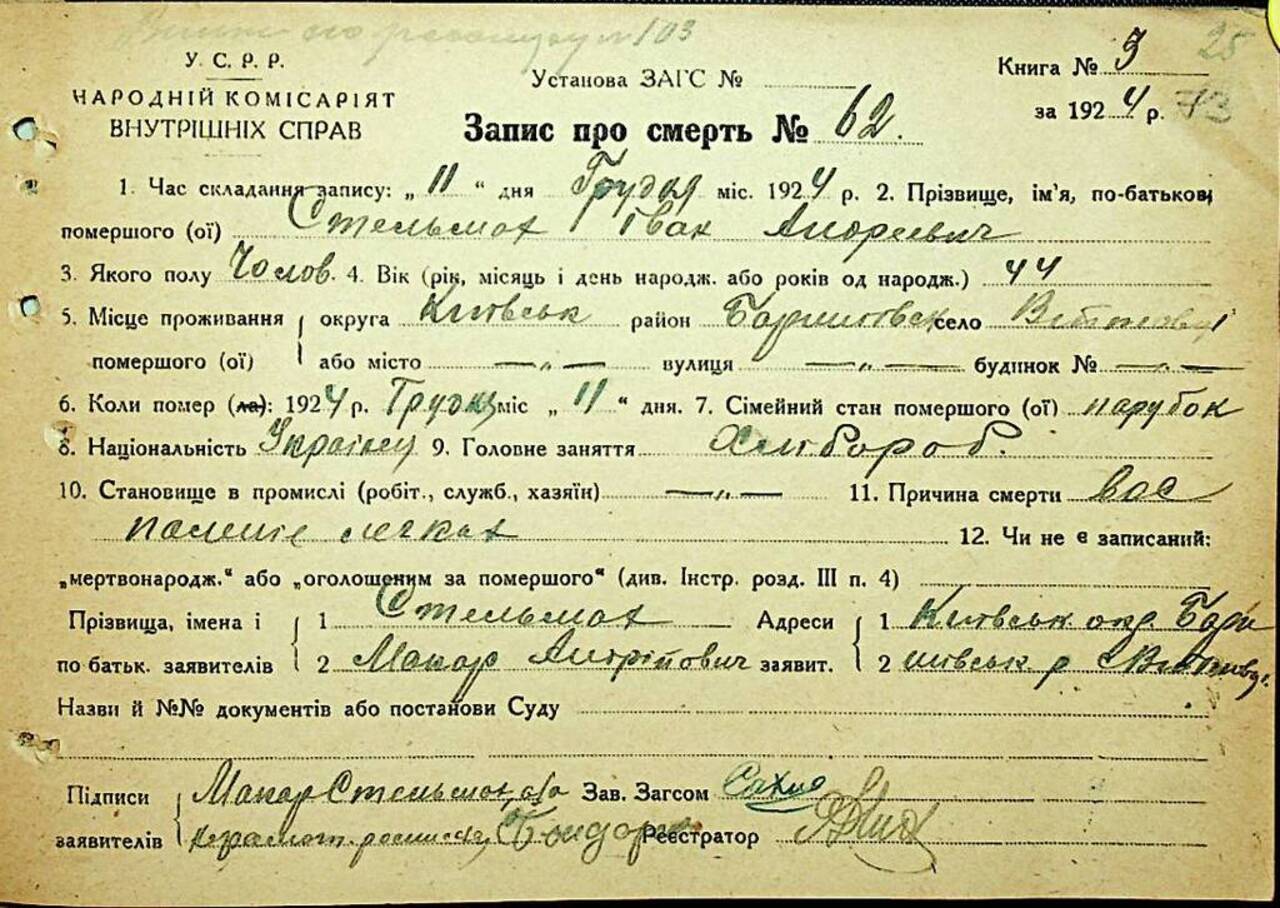 103
25
У. С. Р. Р.
НАРОДНІЙ КОМІСАРІЯТ
ВНУТРІШНІХ СПРАВ
Установа ЗАГС №
Книга № 3
за 1924 р. 73
Запис про смерть № 62.
1. Час складання запису: „11“ дня Грудня міс. 1924 р. 2. Прізвище, ім'я, по-батькові
помершого (ої) Стельмах Іван Андреевич
3. Якого полу Чолов. 4. Вік (рік, місяць і день народж. або років од народж.) 44
5. Місце проживання округа Київськ район Баришевськ село
помершого (ої) або місто —„— вулиця —„— будинок № —„—
6. Коли помер (ла): 1924 р. Грудня міс „11“ дня. 7. Сімейний стан помершого (ої) парубок
8. Національність Українец 9. Головне заняття Хлибороб.
10. Становище в промислі (робіт., служб., хазяїн) —„— 11. Причина смерти вос
паленіе легках 12. Чи не є записаний:
„мертвонародж.“ або „оголошеним за помершого“ (див. Інстр. розд. III п. 4)
Прізвища, імена і 1 Стельмах Адреси 1 Київськ окр. Бари
по батьк. заявителів 2 Макар Андрійович заявит. 2 шівськ р с
Назви й №№ документів або постанови Суду
Підписи Макар Стельмах, а/о Зав. Загсом
заявителів неграмот. росписся Бондар Реєстратор